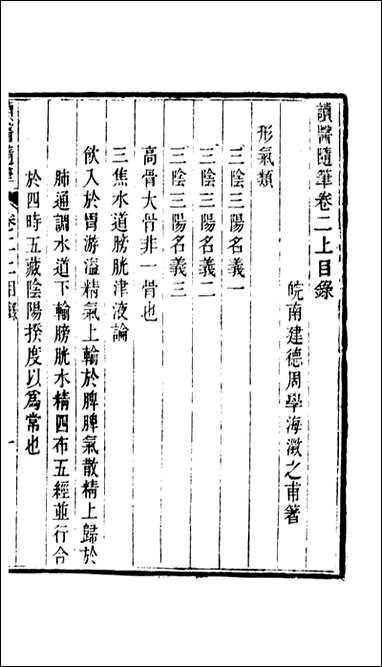 讀醫隨筆卷二上目錄
皖南建德周學海澂之甫著
形氣類
三陰三陽名義一
三陰三陽名義二
三陰三陽名義三
高骨大骨非一骨也
三焦水道膀胱津液論
飲入於胃游溢精氣上輸於脾脾氣散精上歸於
肺通調水道下輸膀胱水精四布五經並行合
於四時五藏陰陽揆度以爲常也